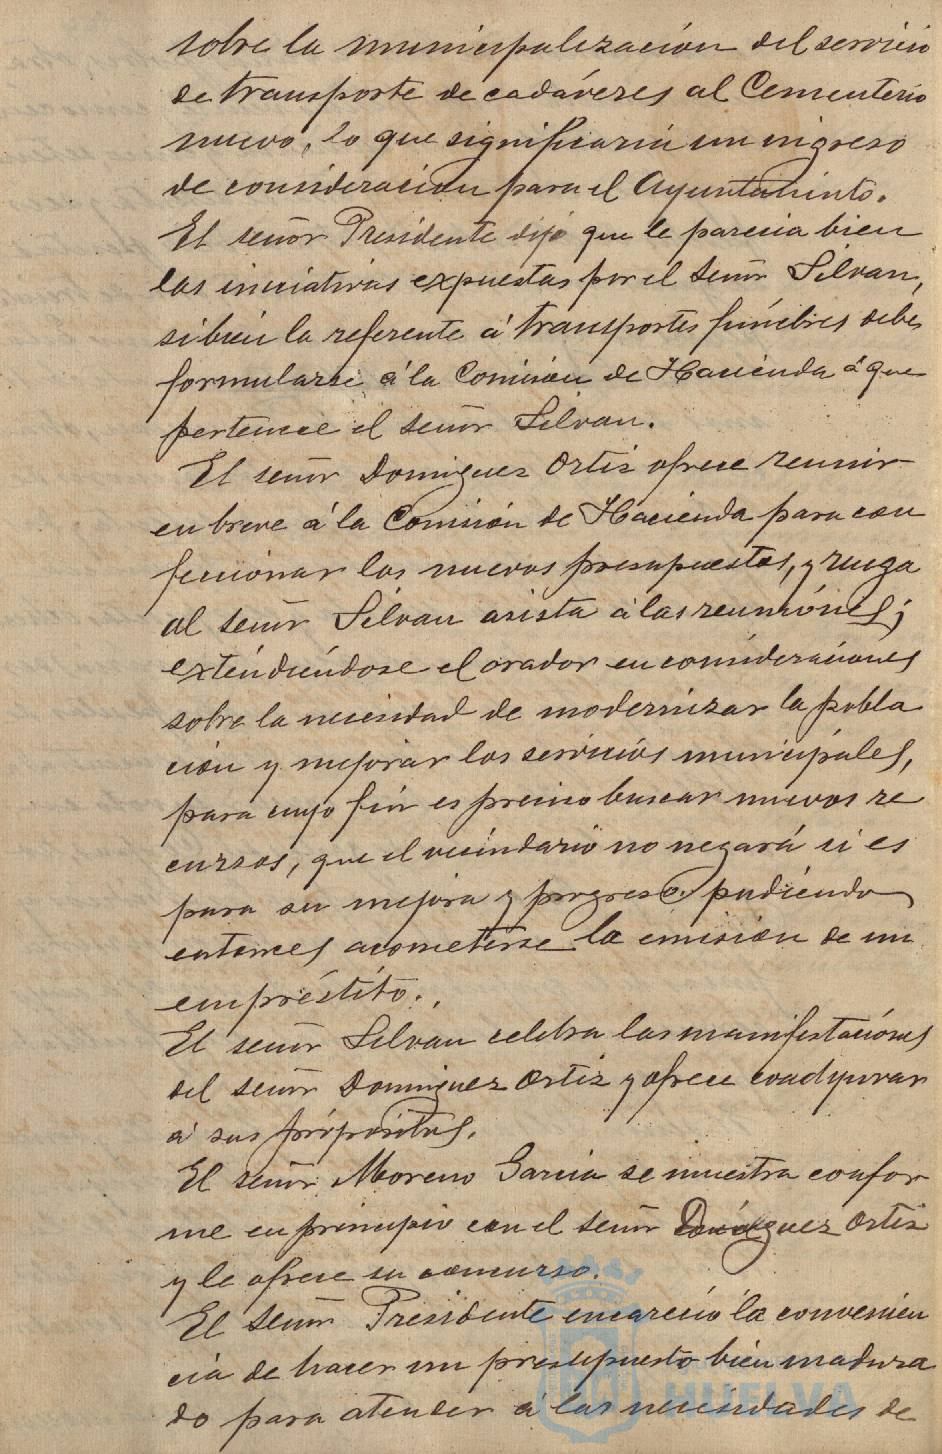 sobre la municipalización del servicio
de transporte de cadáveres al Cementerio
nuevo, lo que significaria un ingreso
de consideración para el Ayuntaminto.
El señor Presidente dijo que le parecia bien
las iniciativas expuestas por el señor Silvan,
si bien la referente á transportes fúnebres debe
formularse á la Comision de Hacienda á que
pertenece el señor Silvan.
El señor Dominguez Ortiz ofrece reunir
en breve á la Comisión de Hacienda para con
feccionar los nuevos presupuestos, y ruega
al señor Silvan asista á las reuniónes;
exténdiéndose el orador en consideraciones
sobre la necesidad de modernizar la pobla
ción y mejorar los servicios municipales,
para cuyo fin es preciso buscar nuevos re
cursos, que el vecindario no negará si es
para su mejora y progreso. pudiendo
entonces acometerse la emision de un
empréstito.
El señor Silván celebra las manifestaciónes
del señor Dominguez Ortiz y ofrece coadyuvar
á sus própositos.
El señor Moreno Garcia se muestra confor
me en principio con el señor Domínguez Ortiz
y le ofrece su concurso.
El señor Presidente encareció la convenien
cia de hacer un presupuesto bien madura
do para atender á las necesidades de
HUELVA